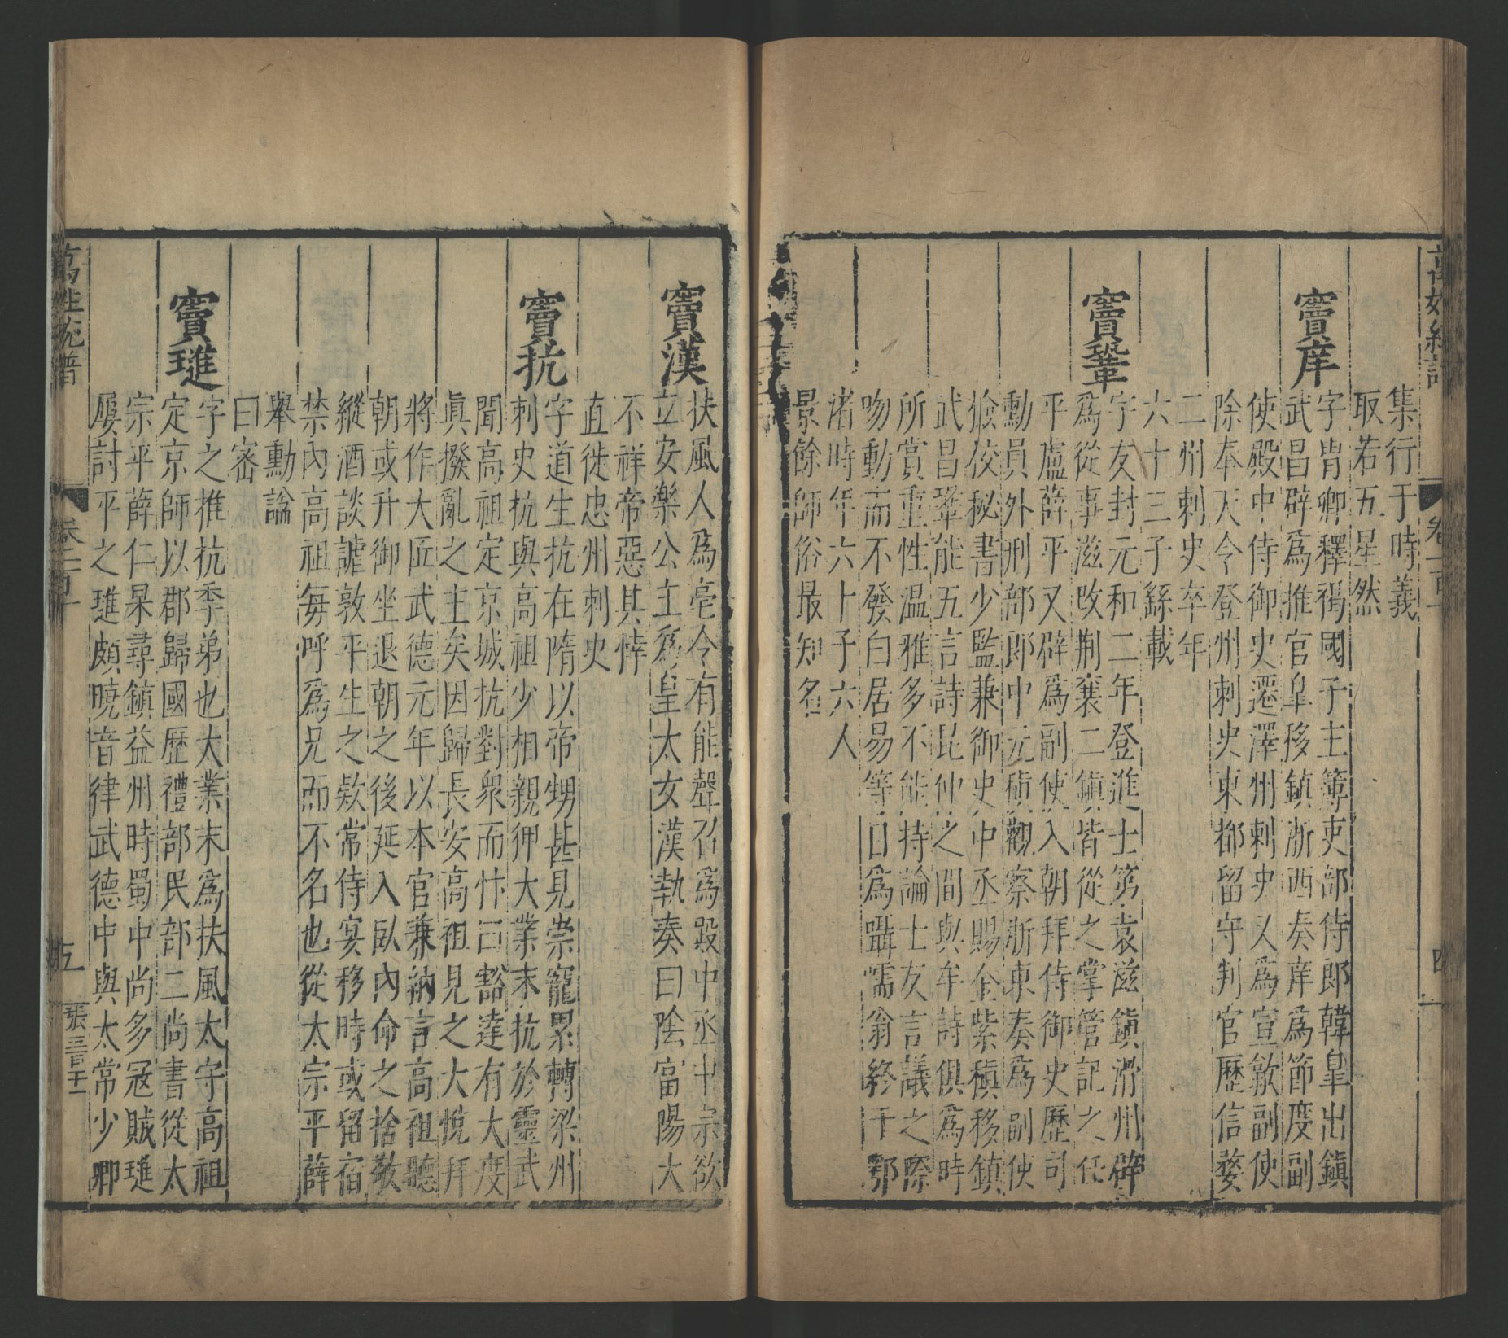 集行于時義
取若五星然
竇庠
字胄卿釋褐國子主簿吏部侍郎韓皐出鎮
武昌辟為推官皐移鎮浙西奏庠為節度副
使殿中侍御史遷澤州刺史又為宣歙副使
除奉天令登州刺史東都留守判官歷信婺
二州刺史卒年
六十三子繇載
竇鞏
字友封元和二年登進士第袁滋鎮滑州辟
為從事滋改荆襄二鎮皆從之掌管記之任
平盧薛平又辟為副使入朝拜侍御史歷司
勳員外刑部郎中元稹觀察浙東奏為副使
檢校秘書少監兼御史中丞賜金紫稹移鎮
武昌鞏能五言詩昆仲之間與牟詩俱為時
所賞重性溫雅多不能持論士友言議之際
吻動而不發白居易等目為囁嚅翁終于鄂
渚時年六十子六人
景餘師裕最知名
竇漢
扶風人為亳令有能聲召為殿中丞中宗欲
立安樂公主為皇太女漢執奏曰陰富陽大
不祥帝惡其悻
直徙忠州刺史
竇抗
字道生抗在隋以帝甥甚見崇寵累轉梁州
刺史抗與高祖少相親狎大業末抗於靈武
聞高祖定京城抗對衆而忭曰豁達有大度
眞撥亂之主矣因歸長安高祖見之大悅拜
將作大匠武德元年以本官兼納言高祖聽
朝或升御坐退朝之後延入臥內命之捨敬
縱酒談謔敦平生之欵常侍宴移時或留宿
禁內高祖每呼為兄而不名也從太宗平薛
舉勳論
曰密
竇璡
字之推抗季弟也大業末為扶風太守高祖
定京師以郡歸國歷禮部民部二尚書從太
宗平薛仁杲尋鎮益州時蜀中尚多冦賊璡
屢討平之璡頗曉音律武德中與太常少卿
萬姓統譜
卷一百一
四
五